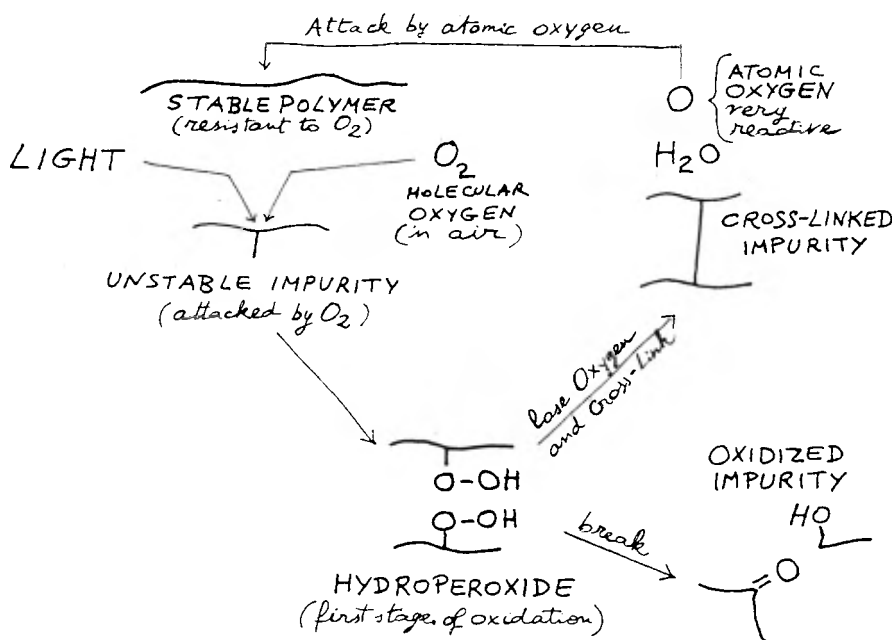 Attack by atomic oxygen
STABLE POLYMER
(resistant to O2)
LIGHT
O2
MOLECULAR
OXYGEN
(in air)
O
ATOMIC
OXYGEN
very
reactive
H2O
CROSS-LINKED
IMPURITY
UNSTABLE IMPURITY
(attacked by O2)
lose Oxygen
and Cross-Link
O-OH
O-OH
HYDROPEROXIDE
(first stage of oxidation)
break
OXIDIZED
IMPURITY
HO
O